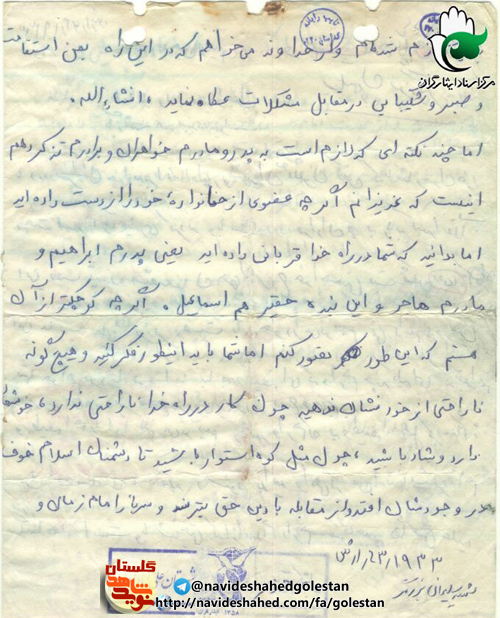 مرکز اسناد ایثارگران
شده‌ام و از خداوند می‌خواهم که در این راه بمن استقامت
و صبر و شکیبایی در مقابل مشکلات عطاء نماید، انشاءالله.
اما چند نکته ای که لازم است به پدر و مادرم خواهران و برادرم تذکر دهم
اینست که عزیزانم اگر چه عضوی از خانوادهٔ خود را از دست داده اید
اما بدانید که شما در راه خدا قربانی داده اید یعنی پدرم ابراهیم و
مادرم هاجر و این بنده حقیر هم اسماعیل. اگر چه کوچکتر از آن
هستم که این طور تصور کنم اما شما باید اینطور فکر کنید و هیچ گونه
ناراحتی از خود نشان ندهید چون کار در راه خدا ناراحتی ندارد، خوشحالی
دارد و شاد باشید، چون مثل کوه استوار باشید تا دشمنان اسلام خوف
در وجودشان افتد و از مقابله با دین حق بترسند و سرباز امام زمان و
گلستان
نوید شاهد
@navideshahedgolestan
http://navideshahed.com/fa/golestan